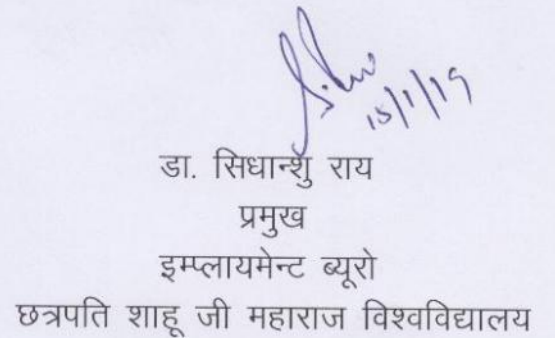 15/1/19
डा. सिधान्शु राय
प्रमुख
इम्प्लायमेन्ट ब्यूरो
छत्रपति शाहू जी महाराज विश्वविद्यालय